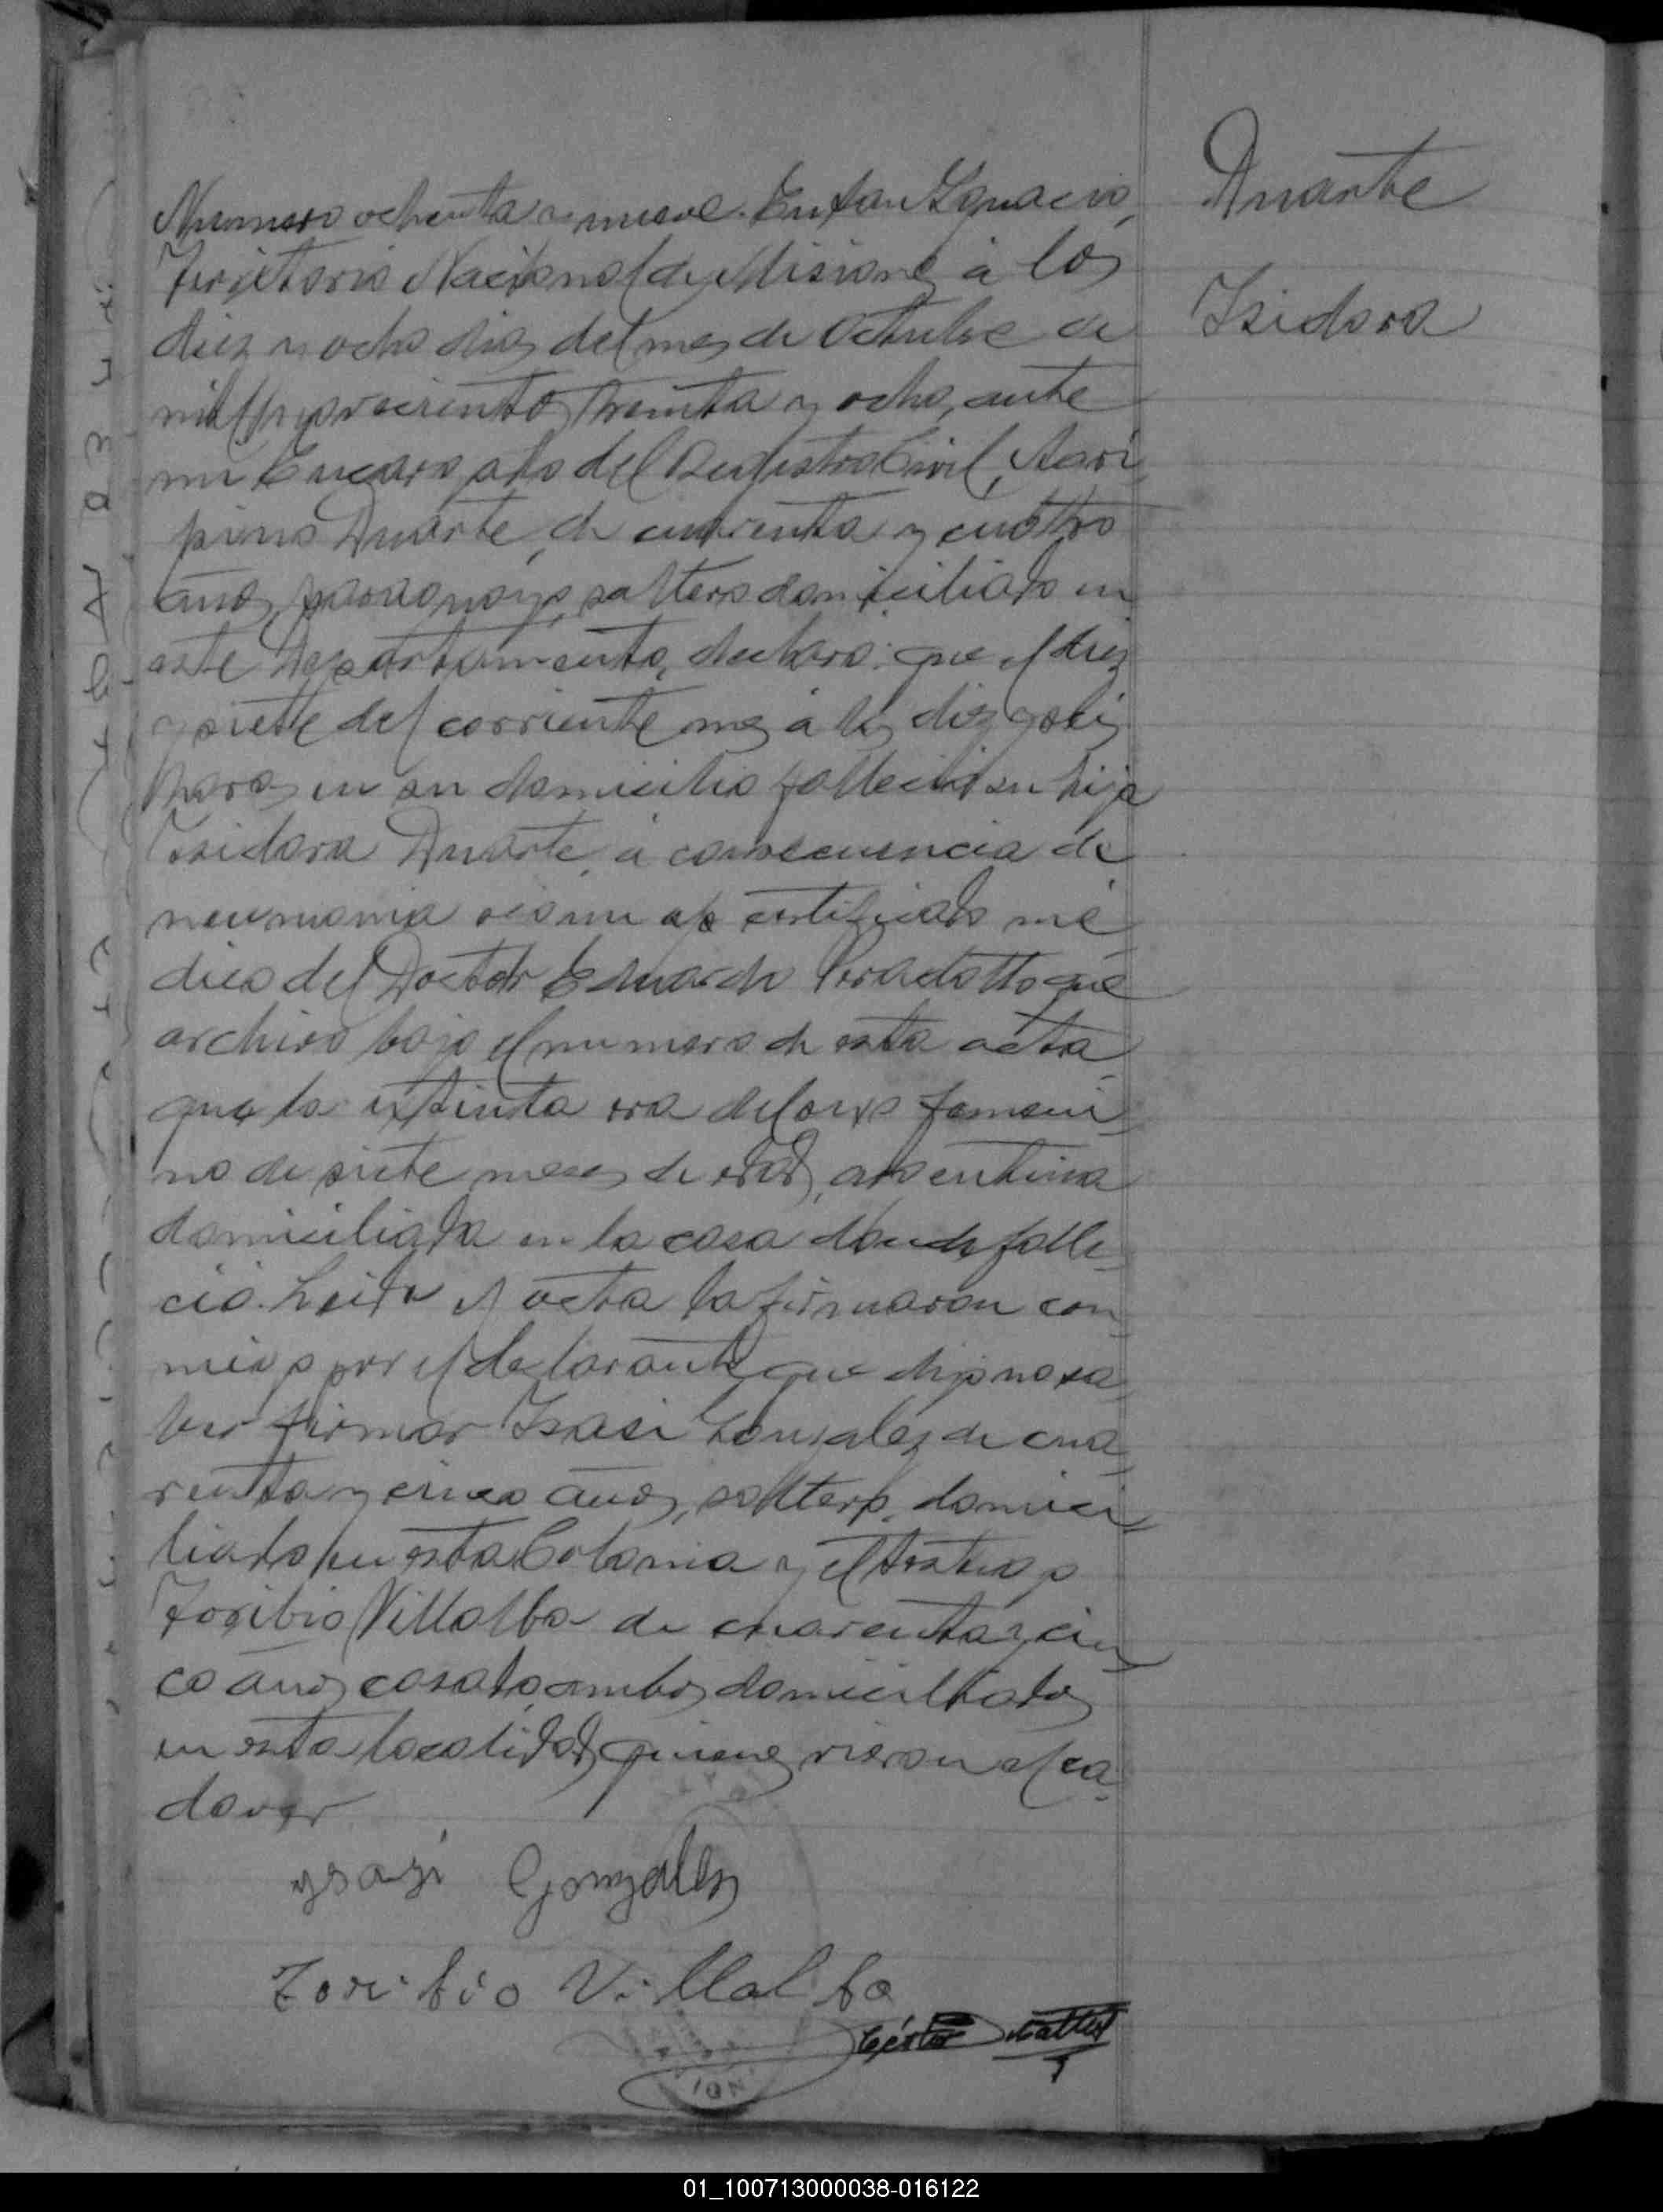 Duarte
Isidora
Numero ochenta y nueve. En San Ignacio,
Territorio Nacional de Misiones, a los
diez y ocho dias del mes de Octubre de
mil novecientos treinta y ocho, ante
mi Encargado del Registro Civil, Agri-
pino Duarte, de cuarenta y cuatro
años, paraguayo, soltero domiciliado en
este Departamento, declaró: que el diez
y siete del corriente mes á las diez y seis
horas en su domicilio falleció su hija
Isidora Duarte, á consecuencia de
neumonia segun certificado mé-
dico del Doctor Eduardo que
archivo bajo el numero de esta acta
que la extinta era del sexo femeni-
no de siete meses de edad, argentina
domiciliada en la casa donde falle-
ció. Leida el acta la firmaron con-
migo por el declarante que dijo no sa-
ber firmar Isasi Gonzalez de cua-
renta y cinco años, soltero, domici-
liado en esta Colonia y el testigo
Toribio Villalba de cuarenta y cin-
co años casado, ambos domiciliados
en esta localidad, quienes vieron el ca-
daver
ysasi Gonzalez
Toribio Villalba
01_100713000038-016122